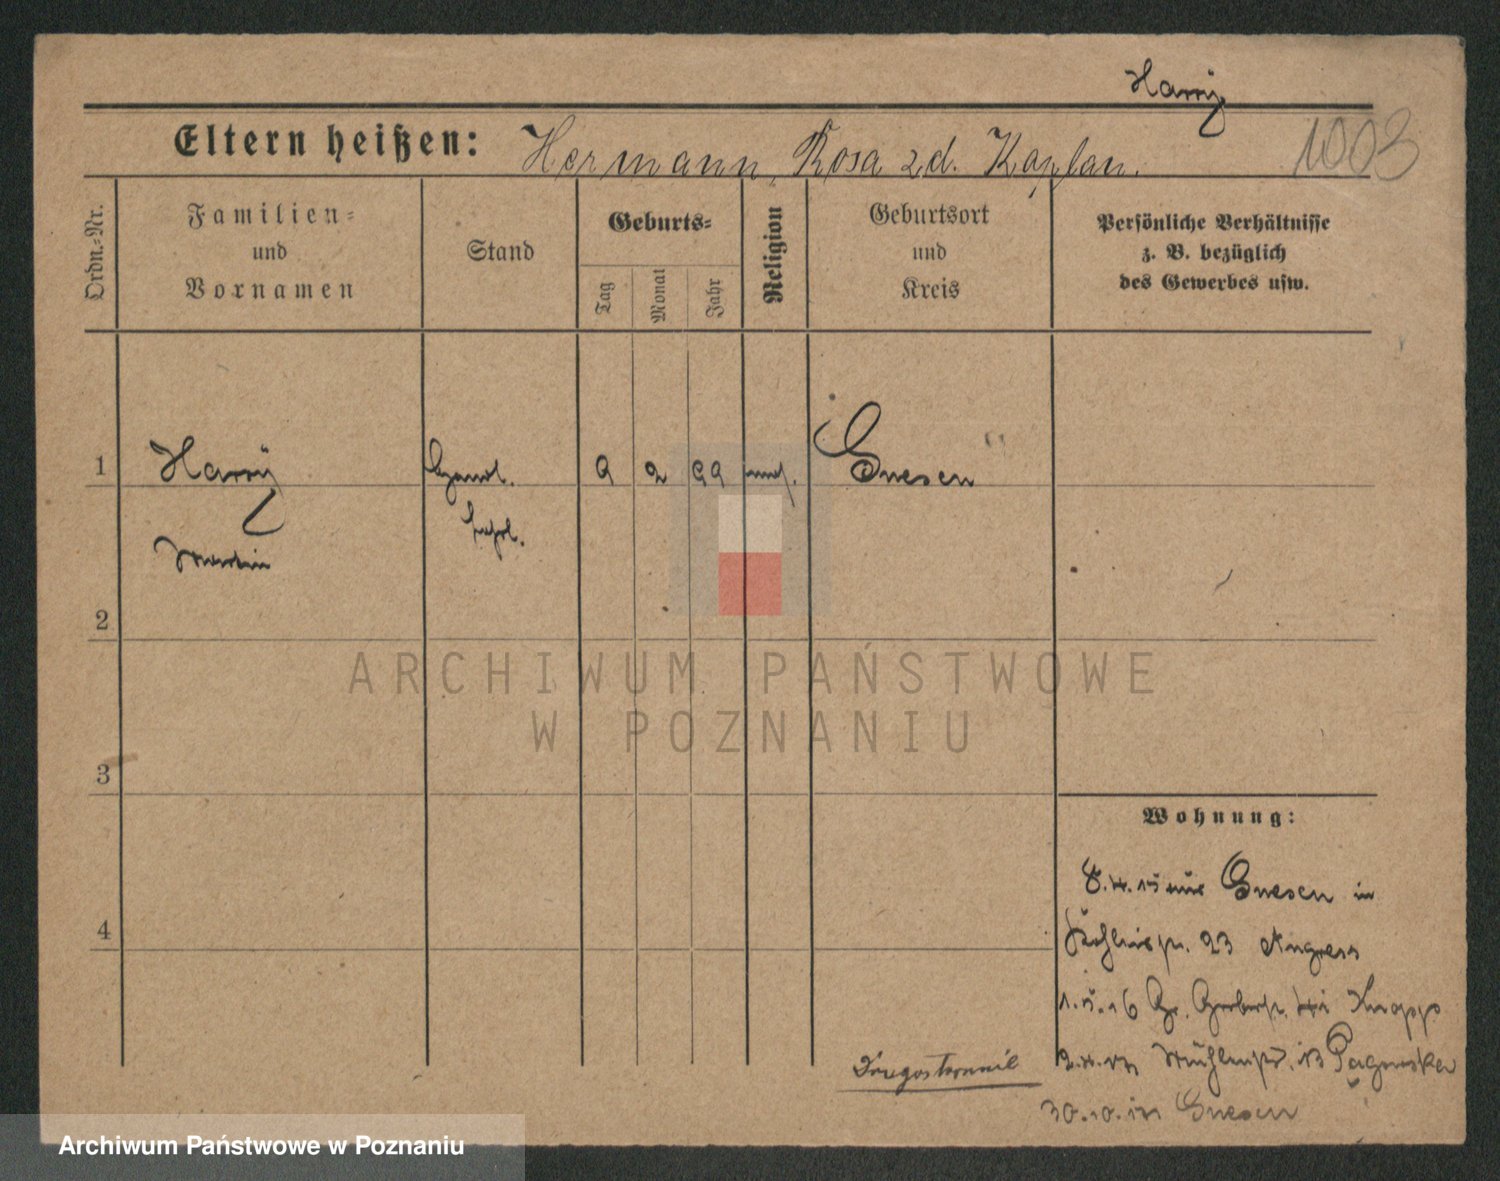 Harry
Eltern heißen: Hermann, Rosa zd. Kaplan.
1003
Ordn.-Nr.
Familien-
und
Vornamen
Stand
Geburts-
Tag
Monat
Jahr
Religion
Geburtsort
und
Kreis
Persönliche Verhältnisse
z. B. bezüglich
des Gewerbes usw.
1 Harry Handl. 9 2 99 mos. Gnesen
Lehrl.
Martin
2
3
4
Wohnung:
8.4.15 aus Gnesen in
23 Angress
1.5.16 Gr. Gerberstr. bei Knapp
Mühlenstr. 13
30.10. Gnesen
ARCHIWUM PAŃSTWOWE
W POZNANIU
Archiwum Państwowe w Poznaniu